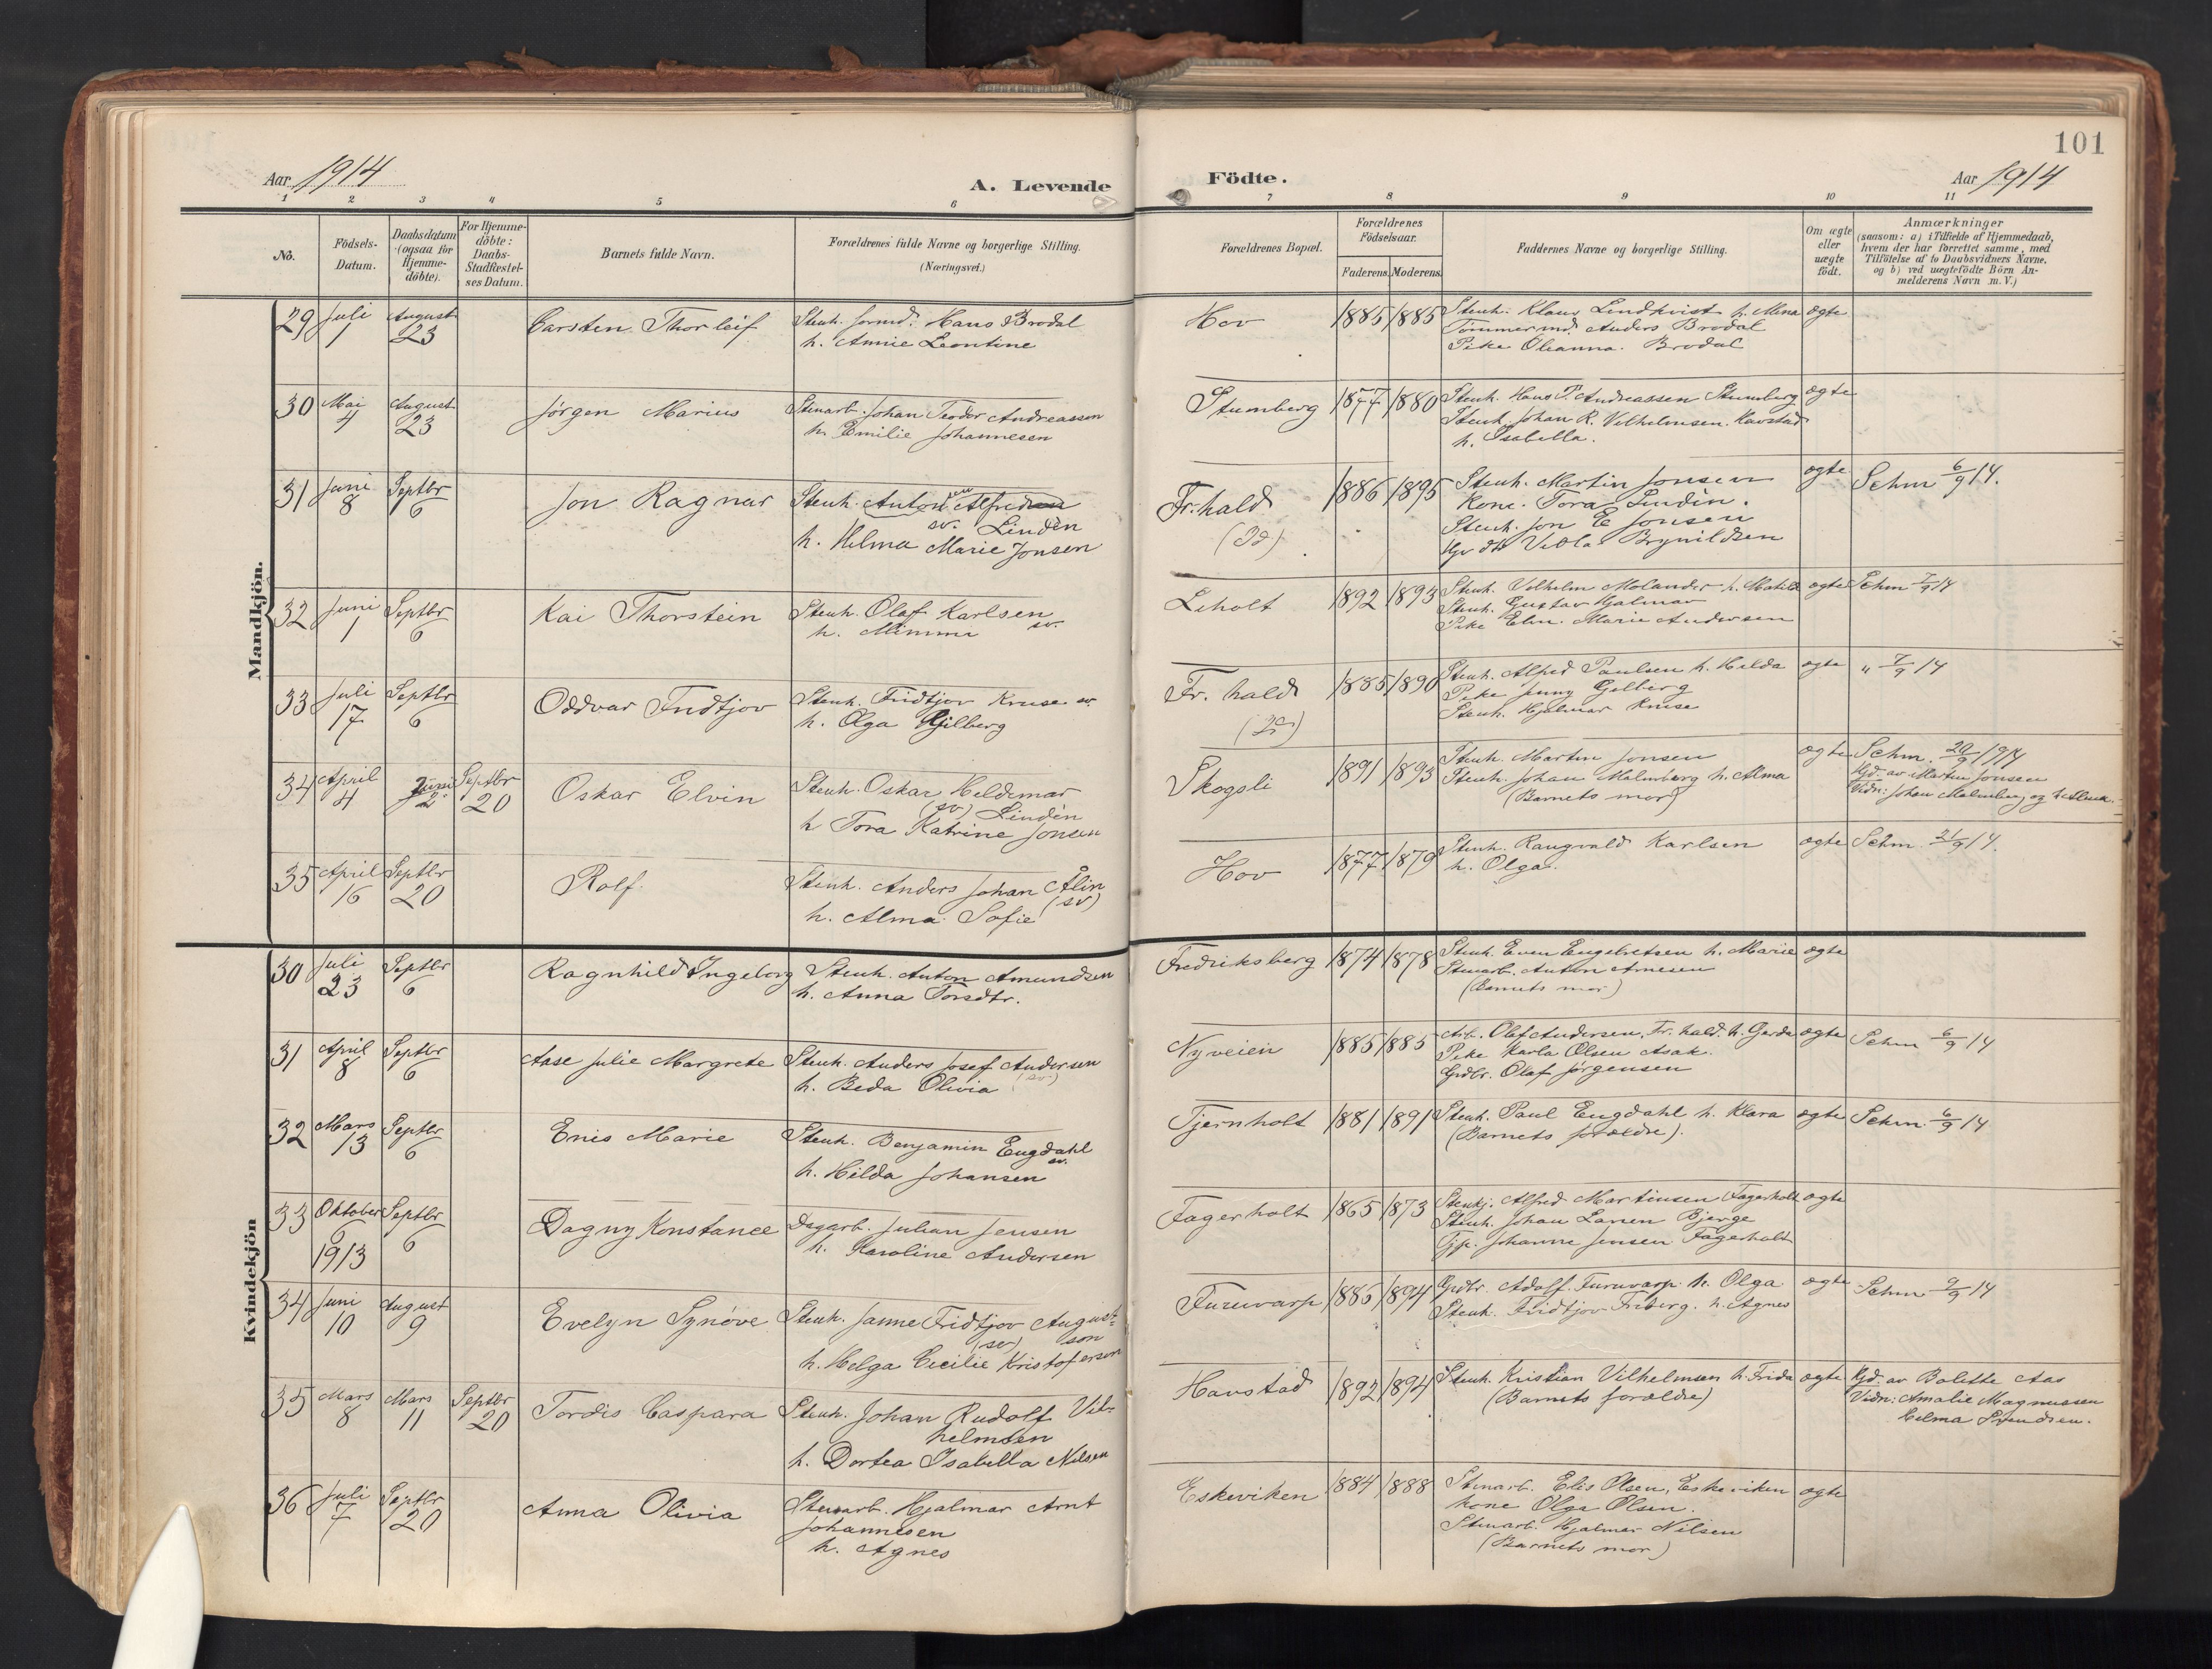 101
Aar 1914
A. Levende
Födte.
Aar 1914
1 2 3 4 5 6 7 8 9 10 11
No.
Födsels-
Datum.
Daabsdatum
(ogsaa for
Hjemme-
döbte).
For Hjemme-
döbte:
Daabs-
Stadfæstel-
ses Datum.
Barnets fulde Navn.
Forældrenes fulde Navne og borgerlige Stilling.
(Næringsvei.)
Forældrenes Bopæl.
Forældrenes
Födselsaar.
Faderens. Moderens.
Faddernes Navne og borgerlige Stilling.
Om ægte
eller
uægte
födt.
Anmærkninger
(saasom: a) i Tilfælde af Hjemmedaab,
hvem der har forrettet samme, med
Tilföielse af to Daabsvidners Navne,
og b) ved uægtefödte Börn An-
melderens Navn m. V.)
Mandkjön.
29 Juli 1 August 23 Carsten Thorleif
Stenh. formd. Hans Brodal
h. Annie Leontine
Hov 1885 1885
Stenh. Klaus Lindkvist h. Mina
Tömmermd. Anders Brodal
Pike Oleanna Brodal
ægte
30 Mai 4 August 23 Jörgen Marius
Stenarb. Johan Teodor Andreassen
h. Emilie Johannesen
Stumberg 1877 1880
Stenh. Hans P. Andreassen Stumberg
Stenh. Johan R. Vilhelmsen Havstad
h. Isabella.
ægte
31 Juni 8 Septbr 6 Jon Ragnar
Stenh. Anton Alfred
sv. Lindèn
h. Hilma Marie Jonsen
Fr.hald
(Id)
1886 1895
Stenh. Martin Jonsen
Kone. Tora Lindèn.
Stenh. Jon E Jonsen
Brynildsen
ægte
Schm 6/9 14.
32 Juni 1 Septbr 6 Kai Thorstein
Stenh. Olaf Karlsen
sv.
h. Mimmi
Liholt 1892 1893
Stenh. Vilhelm Molander h. Matild
Stenh. Gustav Hjalmar
Pike Elin Marie Andersen
ægte
Schm 7/9 14
33 Juli 17 Septbr 6 Oddvar Fridtjov
Stenh. Fridtjov Kruse sv.
h. Olga Gjilberg
Fr. hald
(Id)
1885 1890
Stenh. Alfred Paulsen h. Hilda
Pike Jenny Gjelberg
Stenh. Hjalmar Kruse
ægte
" 7/9 14
34 April 4 Juni 2 Septbr 20 Oskar Elvin
Stenh. Oskar Heldemar
(sv) Lindèn
h Tora Katrine Jonsen
Skogsli 1891 1893
Stenh. Martin Jonsen
Stenh. Johan Malmberg h. Alma
(Barnets mor)
ægte
Schm. 20/9 1914
Hjd. av Martin Jonsen
Vidn: Johan Malmberg og h. Alma.
35 April 16 Septbr 20 Rolf.
Stenh. Anders Johan Ålin
(sv)
h. Alma Sofie
Hov 1877 1879
Stenh. Raugvald Karlsen
h. Olga.
ægte
Schm. 21/9 14.
Kvindekjön
30 Juli 23 Septbr 6 Ragnhild Ingeborg
Stenh. Anton Amundsen
h. Anna Torsdtr.
Fredriksberg 1874 1878
Stenh. Even Engebretsen h. Marie
Stenarb. Anton Arnesen
(Barnets mor)
ægte
31 April 8 Septbr 6 Aase Julie Margrete
Stenh. Anders Josef Andersen
(sv)
h. Beda Olivia
Nyveien 1885 1885
Arb. Olaf Andersen, Fr. hald. h. Gerda
Pike Karla Olsen Asak.
Grdbr. Olaf Jörgensen
ægte
Schm 6/9 14
32 Mars 13 Septbr 6 Enis Marie
Stenh. Benjamin Engdahl
sv.
h. Hilda Johansen
Tjernholt 1881 1891
Stenh. Paul Engdahl h. Klara
(Barnets forældre).
ægte
Schm. 6/9 14
33 Oktober 6 1913 Septbr 6 Dagny Konstance
Dagarb. Julian Jensen
h. Karoline Andersen
Fagerholt 1865 1873
Stenhj. Alfred Martinsen Fagerholt
Stenh. Johan Larsen Bjerge
Tjp. Johanne Jensen Fagerholt
ægte
34 Juni 10 August 9 Evelyn Synöve
Stenh. Janne Fridtjov August-
(sv) son
h. Helga Cicilie Kristoferson
Furuvarp 1885 1894
Grdbr. Adolf Furuvarp h. Olga
Stenh. Fridtjov Friberg. h. Agnes
ægte
Schm 9/9 14
35 Mars 8 Mars 11 Septbr 20 Tordis Caspara
Stenh. Johan Rudolf Vil-
helmsen
h. Dortea Isabella Nilsen
Havstad 1892 1894
Stenh. Kristian Vilhelmsen h. Frida
(Barnets forældre)
ægte
Hjd. av Bolette Aas
Vidn: Amalie Magnussen
Helma Svendsen.
36 Juli 7 Septbr 20 Anna Olivia
Stenarb. Hjalmar Arnt
Johannesen
h. Agnes
Eskeviken 1884 1888
Stenarb. Elis Olsen, Eskeviken
kone Olga Olsen.
Stenarb. Hjalmar Nilsen
(Barnets mor)
ægte